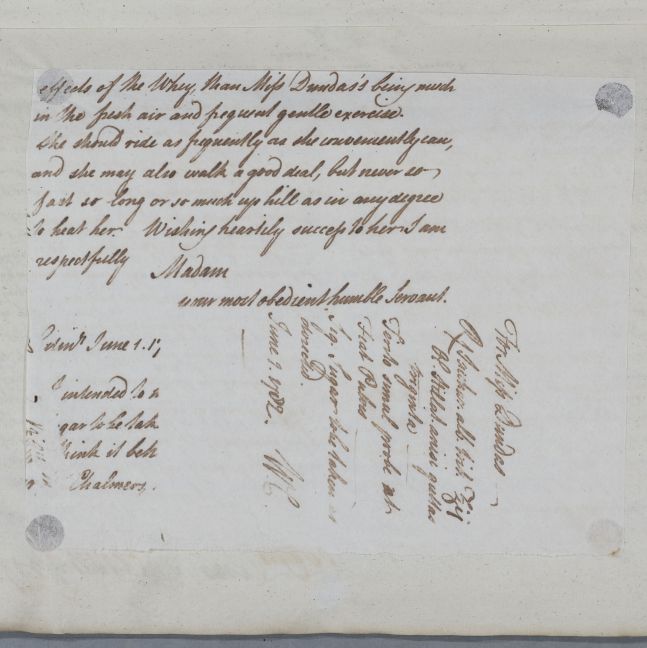 effects of the Whey, than Miss Dundas's being much
in the fresh air and frequent gentle exercise.
she should ride as frequently as she conveniently can,
and she may also walk a good deal, but never so
fast so long or so much up hill as in any degree
to heat her. Wishing heartily success to her I am
respectfully
Madam
your most obedient humble Servant.
Edinr. June 1. 17
I intended to
gar to be tak
think it bett
Chalmers.
For Miss Dundas
Stillatim guttas
viginti
Fiat Pulvis
Sugar to be taken as
June 1. 1782. WC